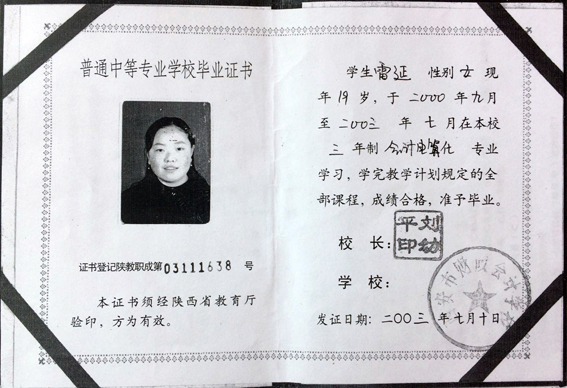 普通中等专业学校毕业证书
证书登记陕教职成第03111638号
本证书须经陕西省教育厅
验印，方为有效。
学生雷延 性别女 现
年19岁，于2000年九月
至二00三 年 七月在本校
三 年制 会计电算化 专业
学习，学完教学计划规定的全
部课程，成绩合格，准予毕业。
校 长：
刘幼平印
学 校：
安市财政会计学校
发证日期：二00三年七月十日